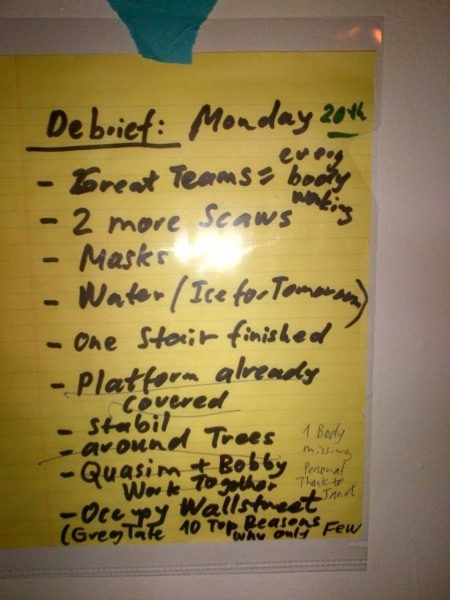 Debrief: Monday 20th
- Great Teams = every body working
- 2 more Scaws
- Masks
- Water (Ice for Tomorrow)
- One Stair finished
- Platform already
covered
- Stabil
- around Trees
- Quasim + Bobby
Work Together
- Occupy Wallstreet
(Greg Tate 10 Top Reasons why only Few
1 Body
missing
Personal
Thank to